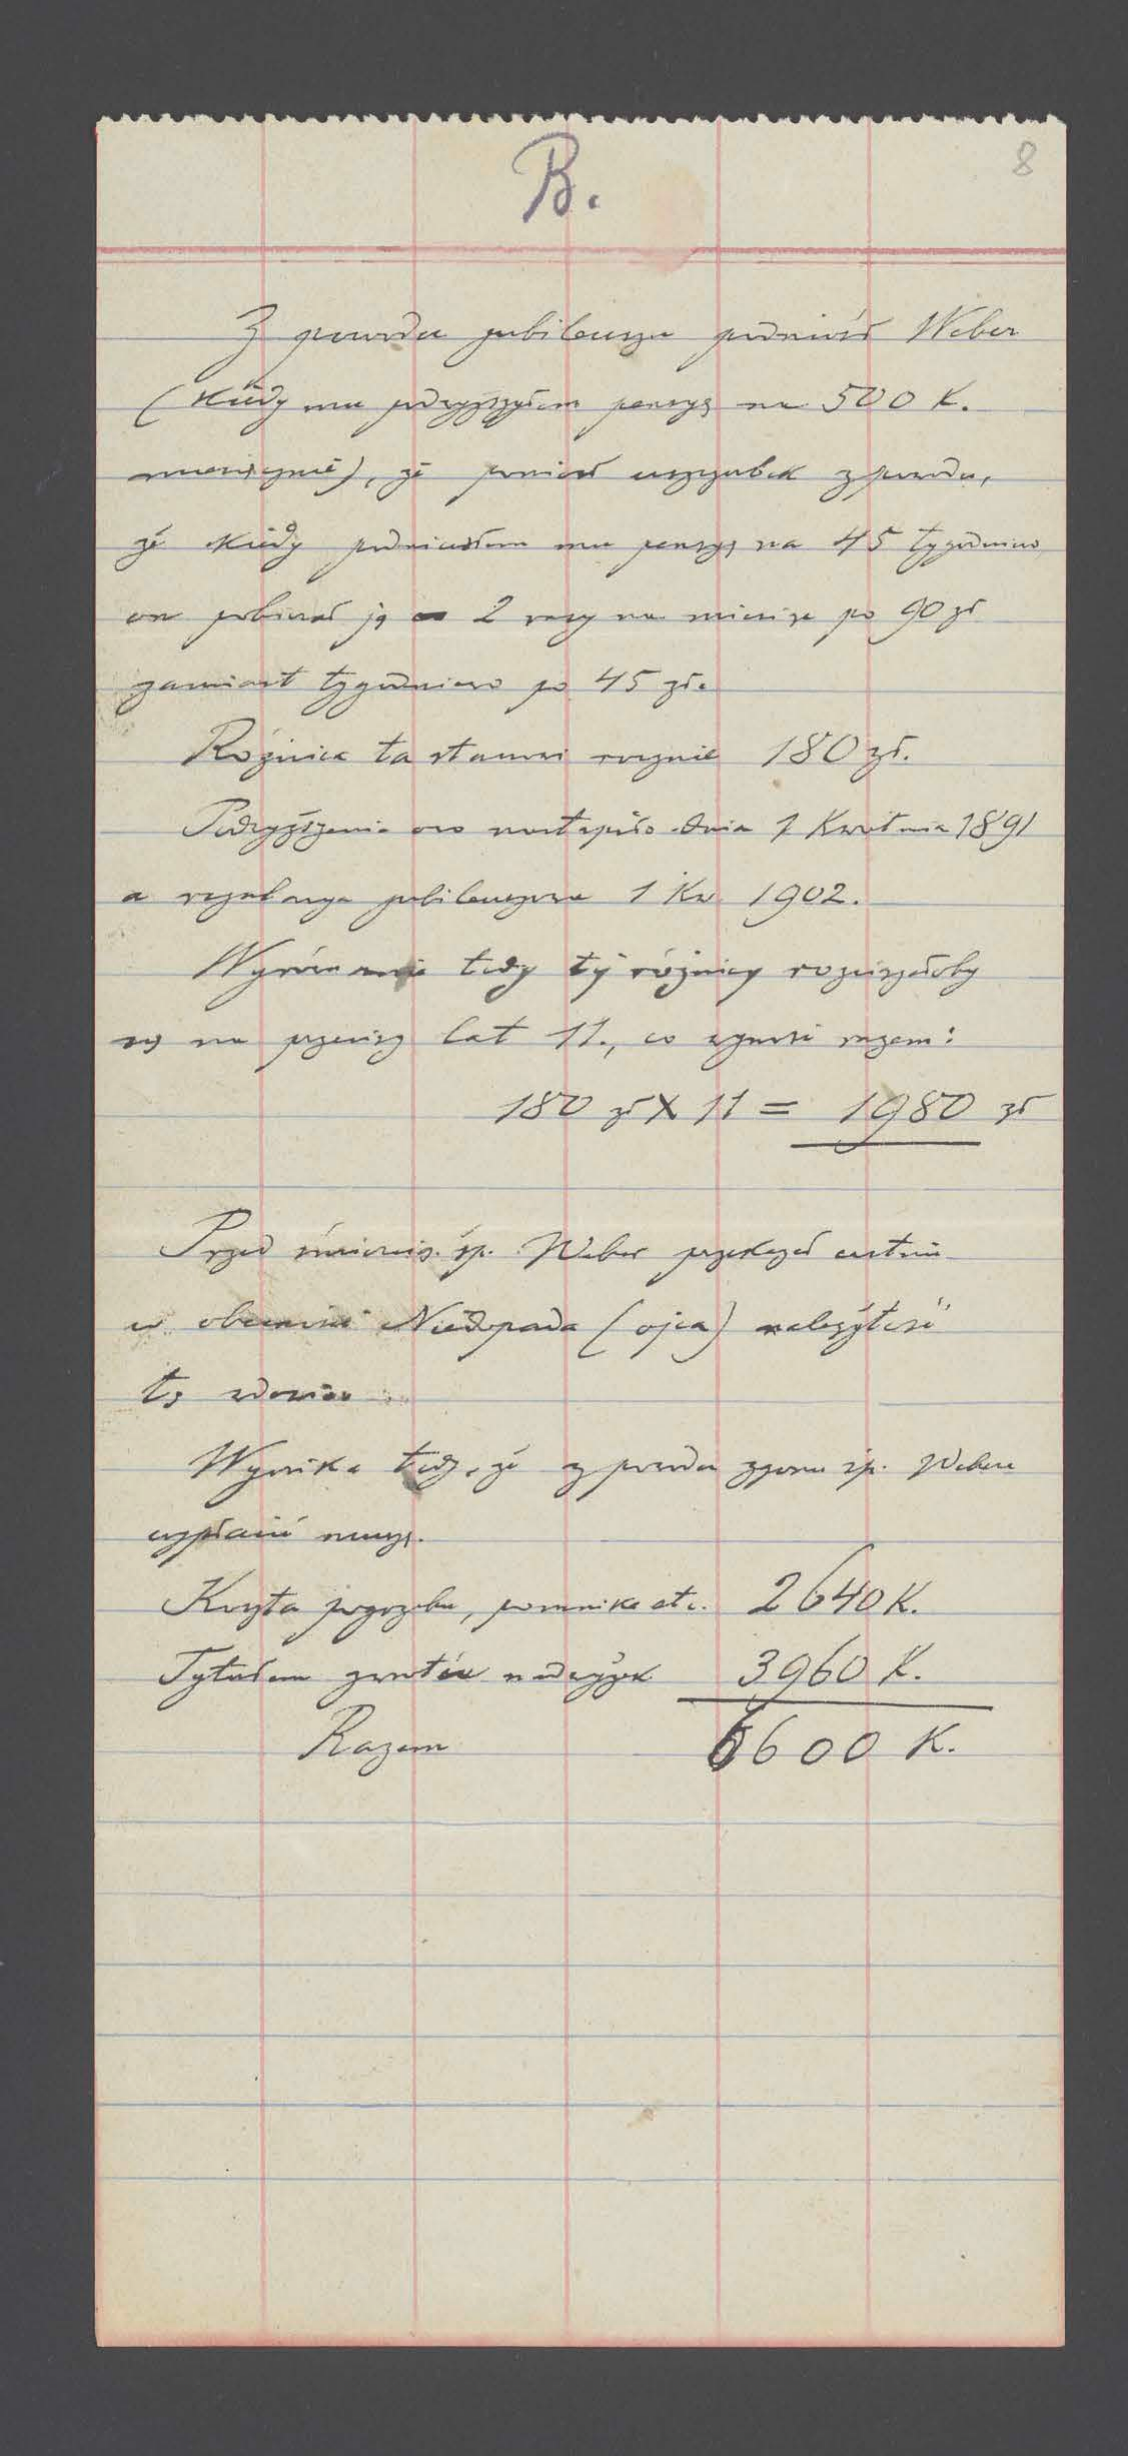 B.
8
Z powodu jubileuszu podniósł Weber
(kiedy mu podwyższyłem pensyę na 500 K.
miesięcznie), że poniósł uszczerbek z powodu,
że kiedy podniosłem mu pensyę na 45 tygodniowo
on pobierał ją 2 razy na miesiąc po 90 zł
zamiast tygodniowo po 45 zł.
Różnica ta stanowi rocznie 180 zł.
Podwyższenie owo nastąpiło dnia 1 Kwietnia 1891
a regulacya jubileuszowa 1 Kw. 1902.
Wyrównanie tedy tej różnicy rozciągałoby
się na przeciąg lat 11., co wynosi razem:
180 zł X 11 = 1980 zł
Przed śmiercią śp. Weber przekazał ustnie
w obecności Niedopada (ojca) należytość
tę
Wynika tedy, że z powodu zgonu śp. Webera
wypłacić muszę.
Koszta pogrzebu, pomnika etc. 2640 K.
Tytułem zwrotów nadwyżek 3960 K.
Razem 6600 K.